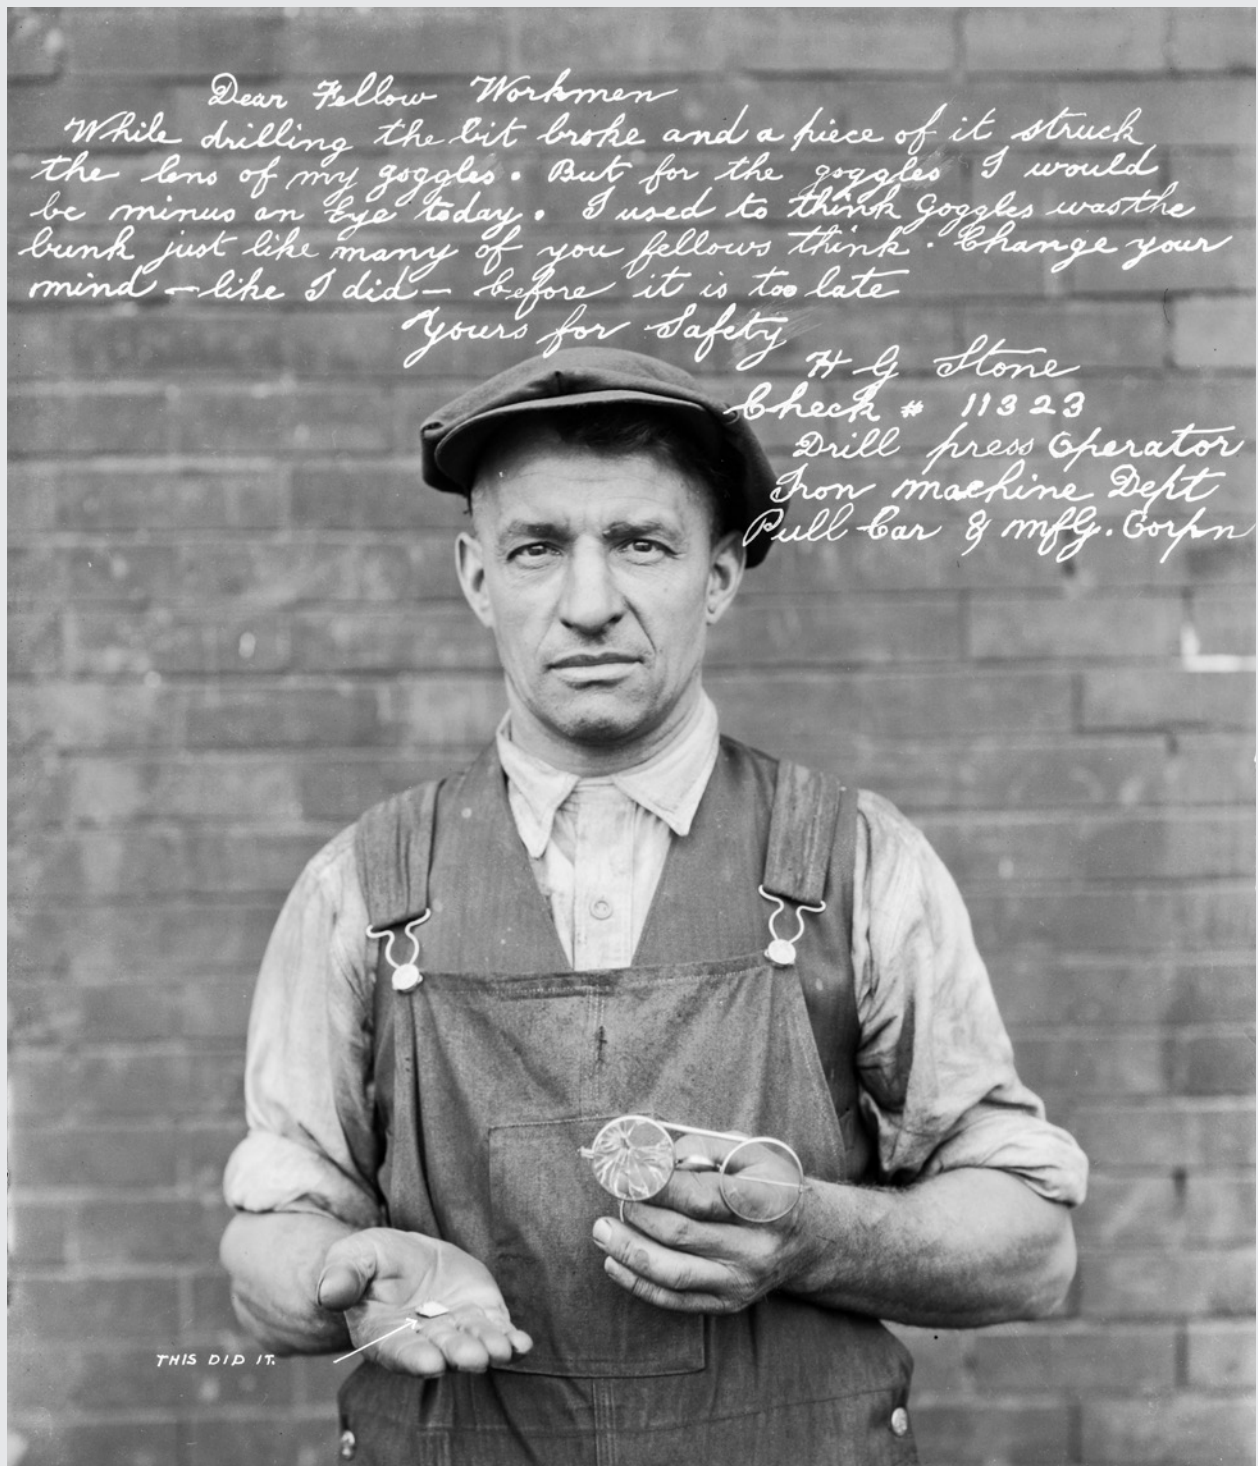 Dear Fellow Workmen
While drilling the bit broke and a piece of it struck
the lens of my goggles. But for the goggles I would
be minus an Eye today. I used to think Goggles was the
bunk just like many of you fellows think. Change your
mind - like I did - before it is too late
Yours for Safety
H G Stone
Check # 11323
Drill press Operator
Iron machine Dept
Pull Car & mfg. Corpn
THIS DID IT.